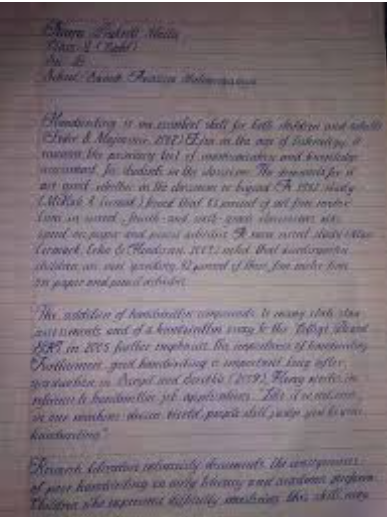 Class 8
Handwriting is an essential skill for both children and adults
(Feder & Majnemer, 2007) Even in the age of technology, it
remains the primary tool of communication and knowledge
assessment for students in the classroom. The demands for it
are great, whether in the classroom or beyond. A 1992 study
(McHale & Cermak) found that 85 percent of all fine motor
time in second-, fourth- and sixth-grade classrooms was
spent on paper and pencil activities. A more recent study
Cermak, & Henderson, 2003) noted that kindergarten
children are now spending 42 percent of their fine motor time
on paper and pencil activities.
The addition of handwritten components to many state
assessments and of a handwritten essay to the College Board
SAT in 2005 further emphasize the importance of handwriting
Furthermore, good handwriting is important long after
graduation. In (2009), Florey writes in
reference to handwritten job applications: "Like it or not, even
in our machine-driven world, people still judge you by your
handwriting"
Research literature extensively documents the consequences
of poor handwriting on early literacy and academic
Children who experience difficulty mastering this skill may